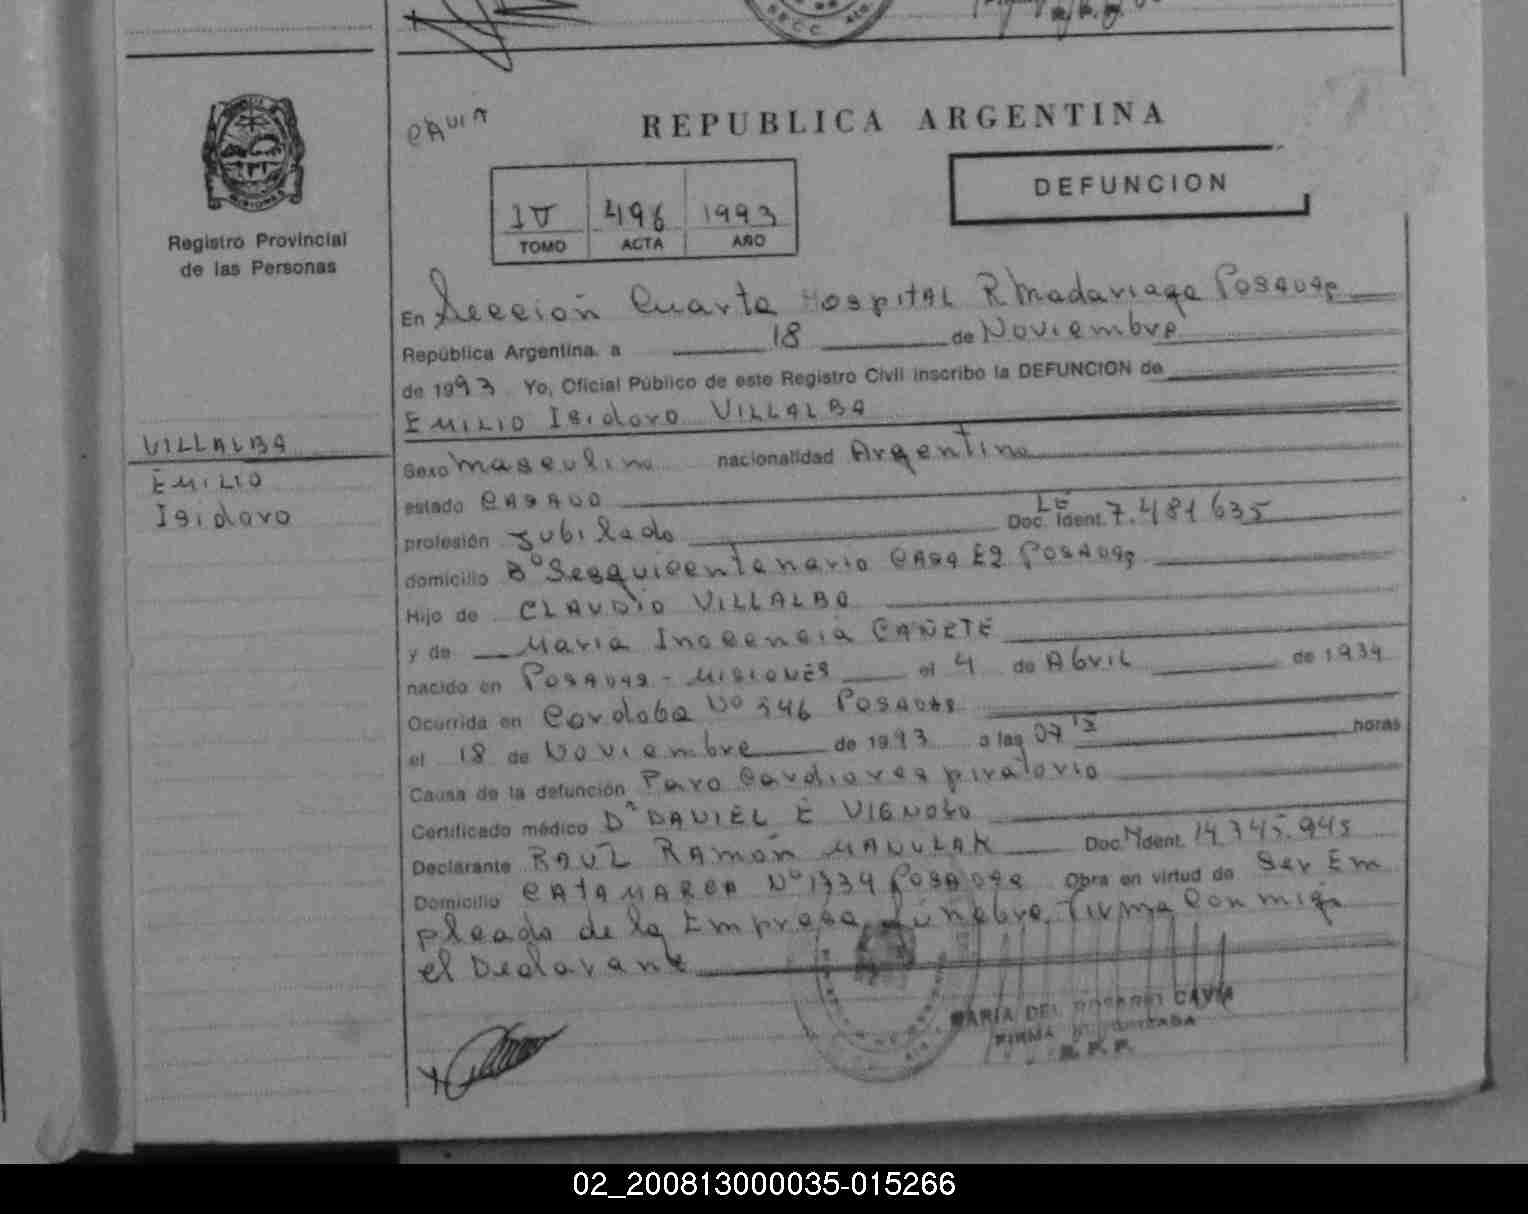 CAVIA
REPUBLICA ARGENTINA
DEFUNCION
IV 496 1993
TOMO ACTA AÑO
Registro Provincial
de las Personas
En Sección Cuarta Hospital R Madariaga Posadas
República Argentina, a 18 de Noviembre
de 1993 Yo, Oficial Público de este Registro Civil inscribo la DEFUNCION de
EMILIO Isidoro VILLALBA
VILLALBA
EMILIO
Isidoro
Sexo masculino nacionalidad Argentina
estado CASADO
profesión Jubilado Doc. Ident. LE 7.481 635
domicilio Bº Sesquicentenario CASA 52 POSADAS
Hijo de CLAUDIO VILLALBA
y de María Inocencia CAÑETE
nacido en POSADAS - MISIONES el 4 de Abril de 1934
Ocurrida en Cordoba Nº 346 POSADAS
el 18 de Noviembre de 1993 a las 07 15 horas
Causa de la defunción Paro Cardiorespiratorio
Certificado médico Dr DANIEL E VIGNOLO
Declarante RAUL RAMON MANULAK Doc. Ident. 14.745.945
Domicilio CATAMARCA Nº 1934 POSADAS Obra en virtud de Ser Em
pleado de la Empresa fúnebre, Firma Con migo
el Declarante
MARIA DEL ROSARIO CAVIA
FIRMA AUTORIZADA
R. P. P.
02_200813000035-015266